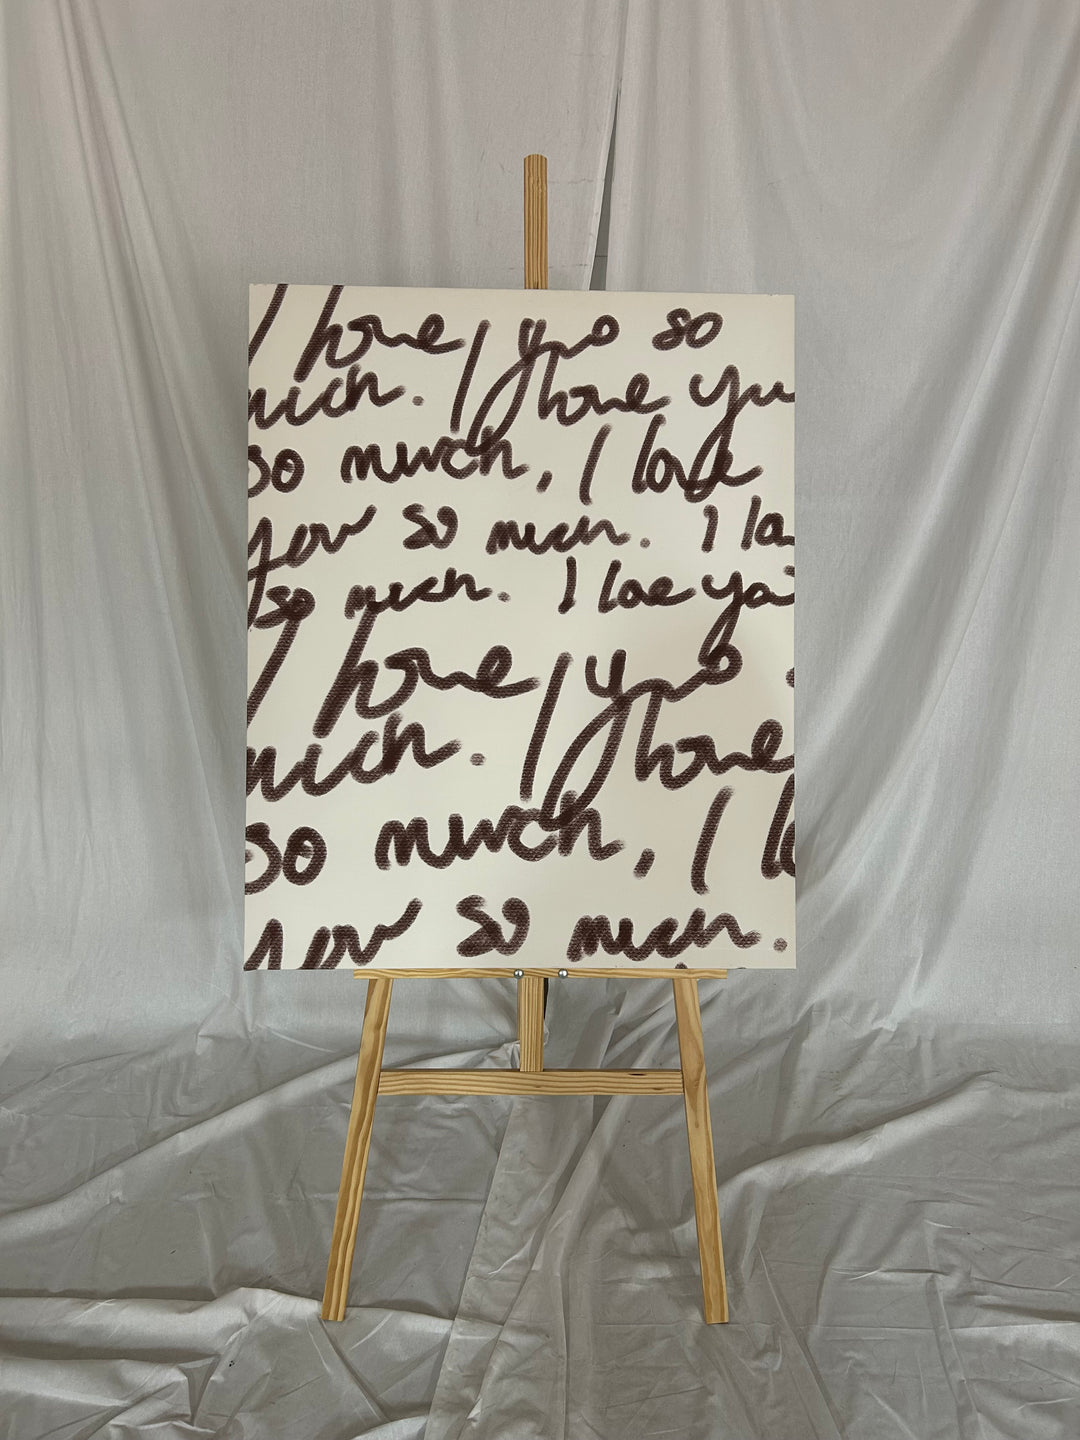 I love you so
much. I love you
so much, I love
you so much. I lo
so much. I lae you
I love you
much. I love
so much, I lo
you so much.